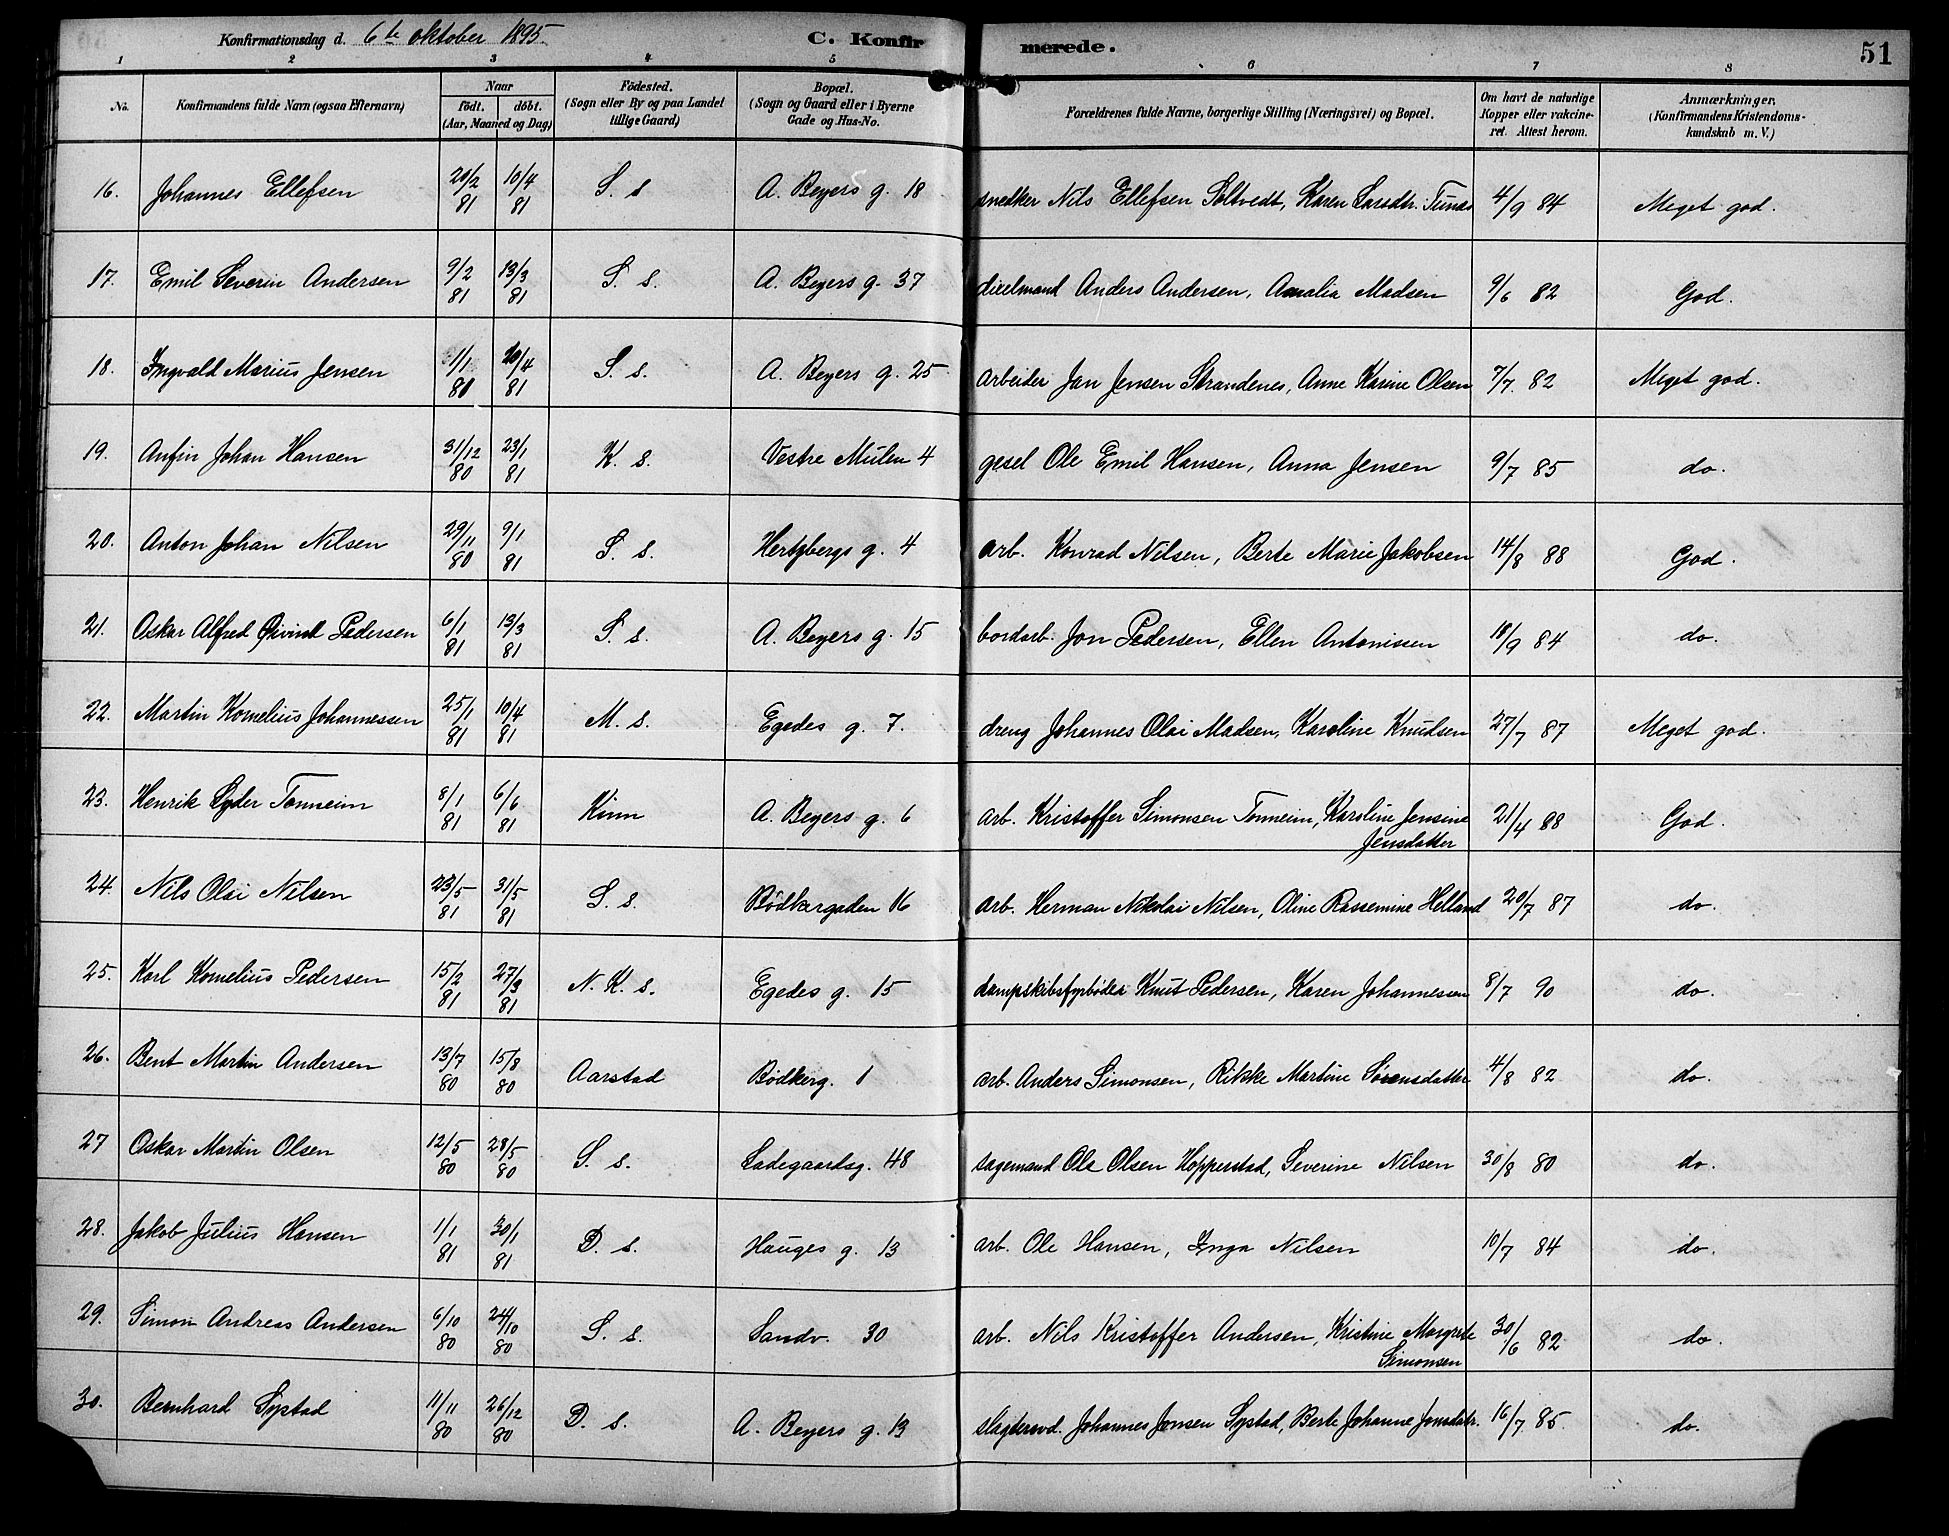 Konfirmationsdag d. 6te oktober 1895. C. Konfirmerede. 51
1 2 3 4 5 6 7 8
No. Konfirmandens fulde Navn (ogsaa Efternavn) Naar födt. döbt. (Aar, Maaned og Dag) Födested. (Sogn eller By og paa Landet tillige Gaard) Bopæl. (Sogn og Gaard eller i Byerne Gade og Hus-No. Forældrenes fulde Navne, borgerlige Stilling (Næringsvei) og Bopæl. Om havt de naturlige Kopper eller vakcineret. Attest herom. Anmærkninger. (Konfirmandens Kristendomskundskab m. V.)
16. Johannes Ellefsen 20/2 81 10/4 81 S. s A. Beyers g. 18 snedker Nils Ellefsen Soltvedt, Karen Larsdtr. Tunæs 4/9 84 Meget god.
17. Emil Severin Andersen 9/2 81 13/3 81 S. s. A. Beyers g. 37 dixelmand Anders Andersen, Amalia Madsen 9/6 82 God.
18. Ingvald Marius Jensen 1/1 81 20/4 81 S. s. A. Beyers g. 25 arbeider Jan Jensen Strandenes, Anne Karine Olsen 7/7. 82 Meget god.
19. Anfin Johan Hansen 31/12 80 23/1 81 K. s. Vestre Mulen 4 gesel Ole Emil Hansen, Anna Jensen 9/7 85 do.
20. Anton Johan Nilsen 29/11 80 9/1 81 S. s. Hertzbergs g. 4 arb. Konrad Nilsen, Berte Marie Jakobsen 14/8 88 God.
21. Oskar Alfred Øivind Pedersen 6/1 81 13/3 81 S. s. A. Beyers g. 15 bordarb. Jon Pedersen, Ellen Antonissen 18/9 84 do.
22. Martin Kornelius Johannessen 25/1 81 10/4 81 M. s. Egedes g. 7. dreng Johannes Olai Madsen, Karoline Knudsen 27/7 87 Meget god.
23. Henrik Lyder Tonneim 8/1 81 6/6 81 Kinn A. Beyers g. 6 arb. Kristoffer Simonsen Tonneim, Karoline Jensine Jensdatter 21/4 88 God.
24. Nils Olai Nilsen 23/5 81 31/5 81 S. s. Bödkergaden 16 arb. Herman Nikolai Nilsen, Oline Rassemine Helland 20/7 87 do.
25. Karl Kornelius Pedersen 15/2 81 27/3 81 N. K. s. Egedes g. 15 dampskibsfyrbøder Knut Pedersen, Karen Johannessen 8/7 90 do.
26. Bent Martin Andersen 13/7 80 15/8 80 Aarstad Bödkerg. 1 arb. Anders Simonsen, Rikke Martine Sørensdatter 4/8 82 do.
27 Oskar Martin Olsen 12/5 80 28/5 80 S. s. Ladegaardsg. 48 sagemand Ole Olsen Hopperstad, Severine Nilsen 30/8 80 do.
28. Jakob Julius Hansen 1/1 81 30/1 81 D. s. Hauges g. 13 arb. Ole Hansen, Inga Nilsen 10/7 84 do.
29. Simon Andreas Andersen 6/10 80 24/10 80 S. s. Sandv. 30 arb. Nils Kristoffer Andersen, Kristine Margrete Simonsen 30/6 82 do.
30. Bernhard Systad 11/11 80 26/12 80 D. s. A. Beyers g. 13 slagtersvd. Johannes Jonsen Systad, Berte Johanne Jonsdatr. 16/7. 85. do.